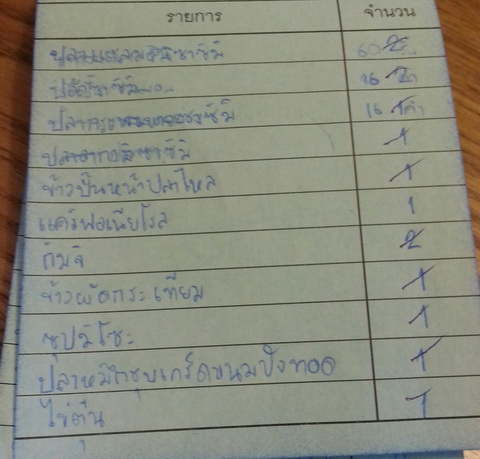 รายการ จำนวน
ปลาแซลมอนซาชิมิ
ซาชิมิ 16
ซาชิมิ 16 คำ
ซาชิมิ 1
ข้าวปั้นหน้าปลาไหล 1
แคลิฟอเนียโรล 1
กิมจิ 2
ข้าวผัดกระเทียม 1
ซุปมิโซะ 1
ปลาหมึกชุบเกร็ดขนมปังทอด 1
ไข่ตุ๋น 1